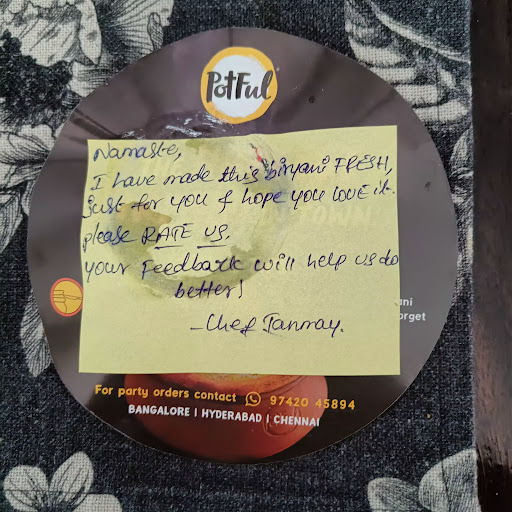 PotFul
Namaste,
I have made this biryani FRESH,
just for you & hope you love it.
please RATE US.
your Feedback will help us do
better!
- Chef Tanmay.
TOWN
ani
orget
For party orders contact 97420 45894
BANGALORE | HYDERABAD | CHENNAI